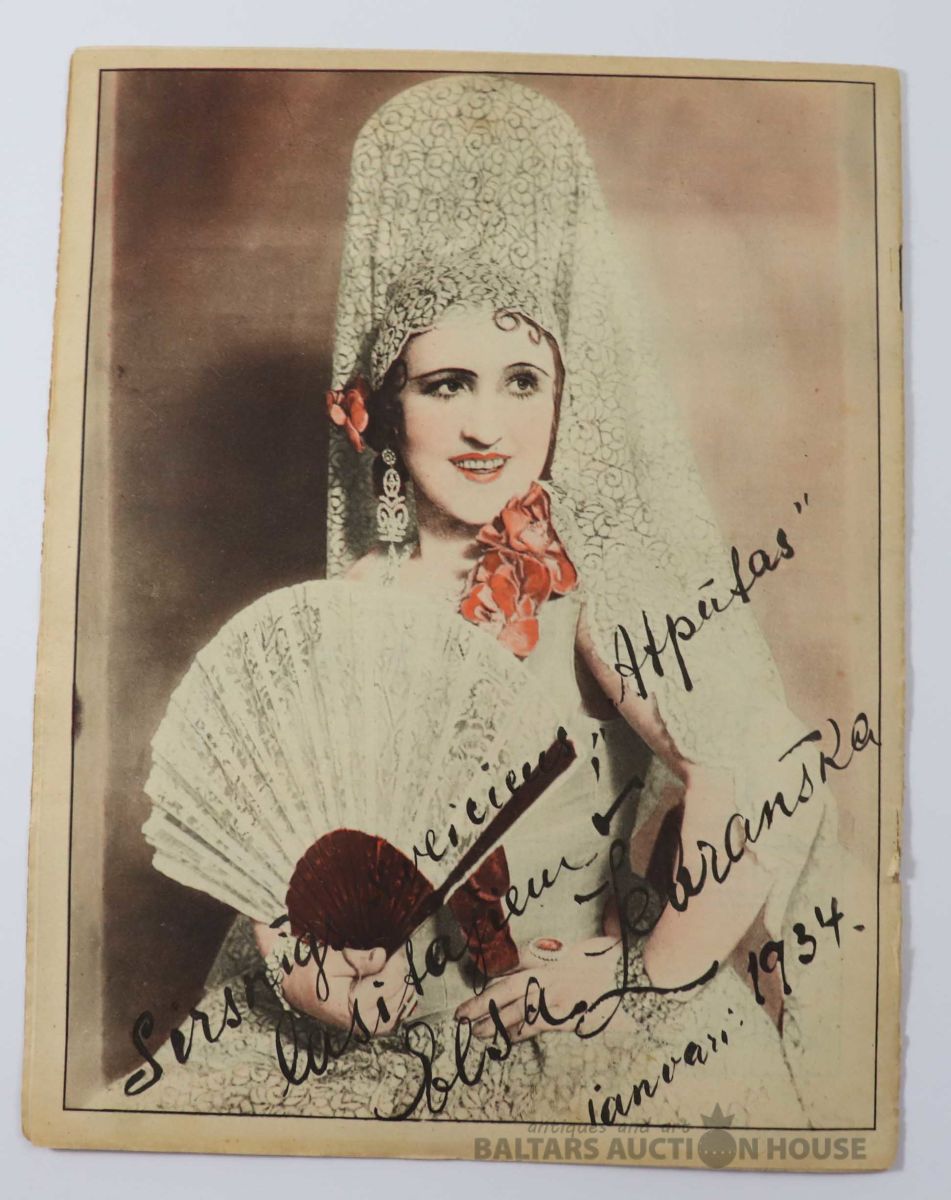 Sirsnīgs sveiciens „Atpūtas"
lasītājiem
Elsa Žebranska
janvarī 1934.
antiques and art
BALTARS AUCTION HOUSE